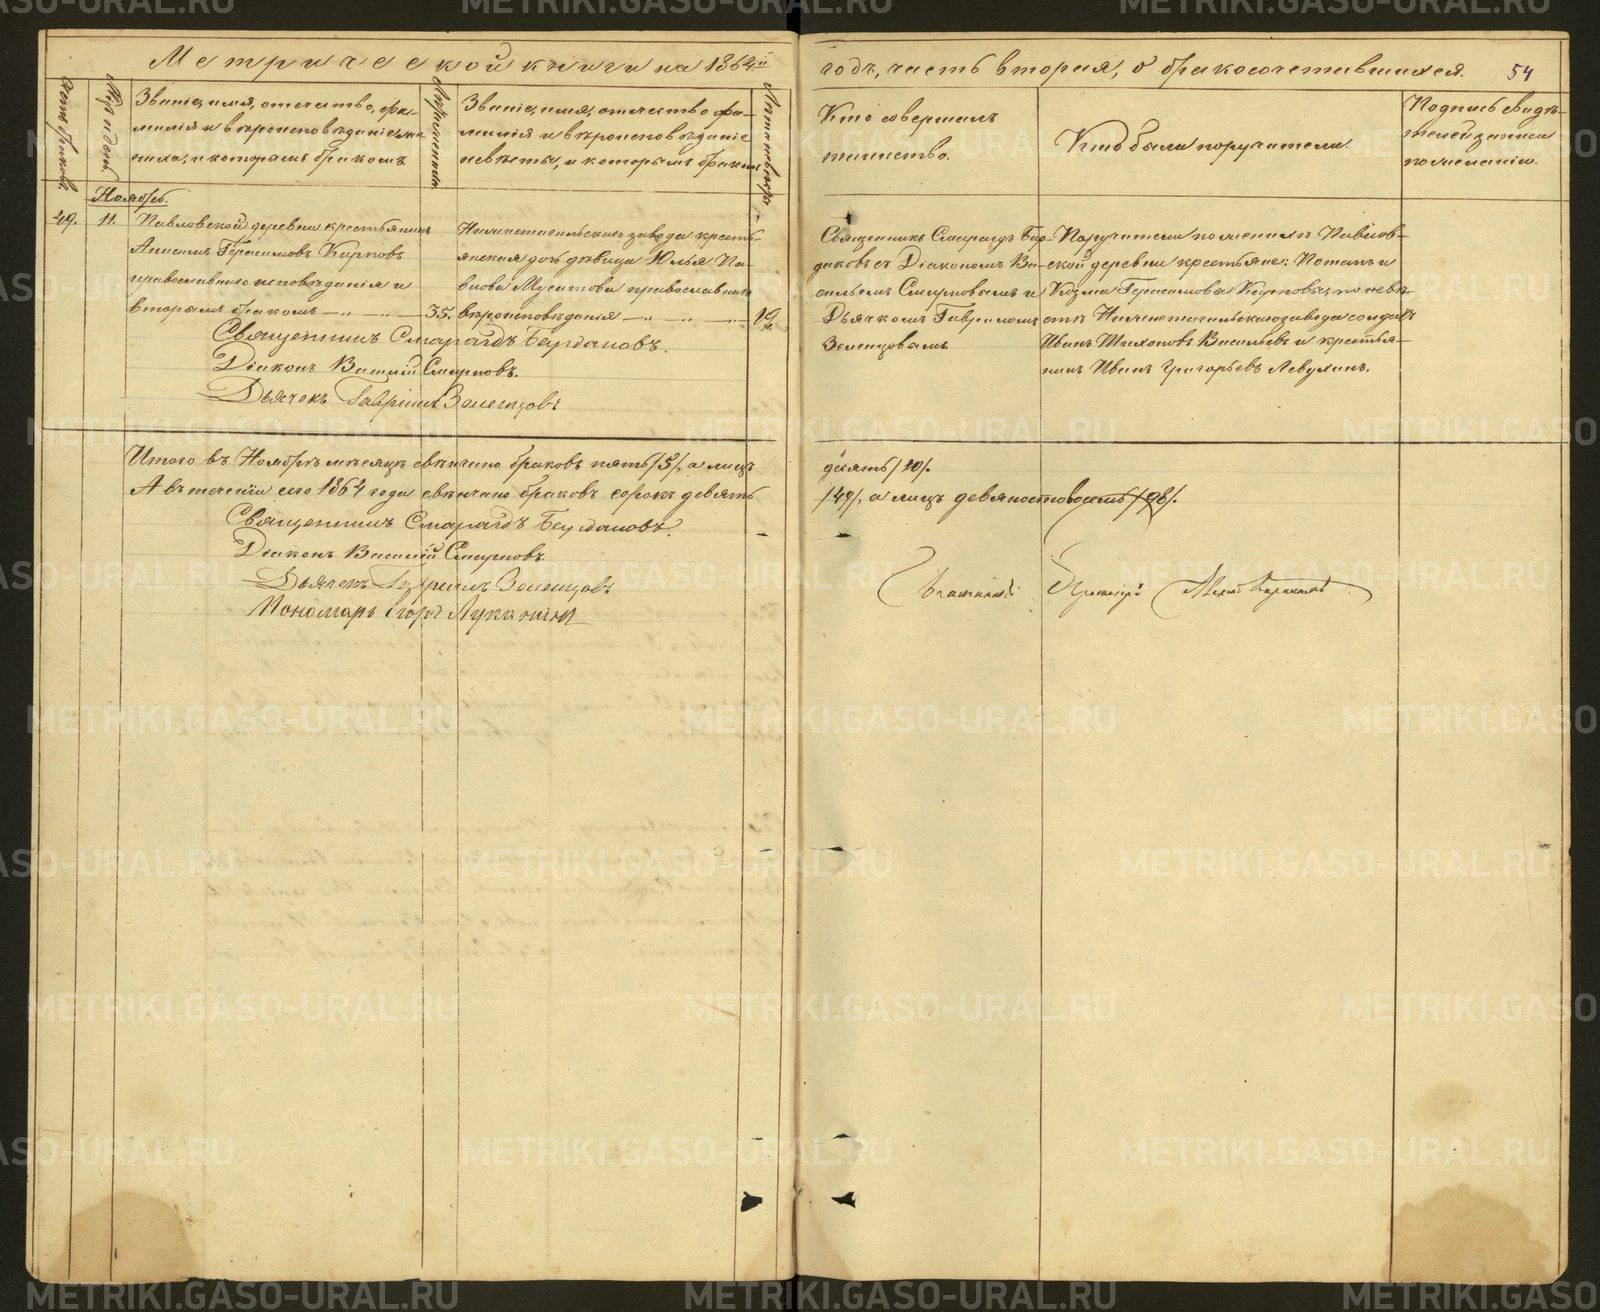 Метрической книги на 1864й
годъ, часть вторая, о бракосочетавшихся.
54
Счетъ браковъ.
Мѣс. и день.
Званіе, имя, отечество, фа-
милія и вѣроисповѣданіе, же-
ниха, и которымъ бракомъ
Лѣта жениха.
Званіе, имя, отечество фа-
милія и вѣроисповѣданіе
невѣсты, и которымъ бракомъ
Лѣта невѣсты
Кто совершалъ
таинство.
Кто были поручители.
Подпись свидѣ-
телей записи
по желанію.
Ноябрь.
49.
11.
Павловской деревни крестьянинъ
Герасимовъ Карповъ
православнаго исповѣданія и
вторымъ бракомъ
35.
Нижнетагильскаго завода кресть-
янская дочь дѣвица Юлья Па-
влова Мусатова православнаго
вѣроисповѣданія
19
Священникъ Смарагдъ Бир-
даковъ съ Діакономъ Ва-
сильемъ Смирновымъ и
Дьячкомъ Гавріиломъ
Зеленцовымъ
Поручители по женихѣ Павлов-
ской деревни крестьяне: Потапъ и
Козма Герасимовы Карповы, по невѣ-
стѣ Нижнетагильскаго завода солдатъ
Иванъ Тихоновъ Васильевъ и крестья-
нинъ Иванъ Григорьевъ Левухинъ.
Священникъ Смарагдъ Бирдаковъ.
Діаконъ Василій Смирновъ.
Дьячекъ Гавріилъ Зеленцовъ
Итого въ Ноябрѣ мѣсяцѣ свѣнчано браковъ пять /5/, а лицъ
десять /10/.
А въ теченіи сего 1864 года свѣнчано браковъ сорокъ девять
/49/, а лицъ девяностовосемь /98/.
Священникъ Смарагдъ Бирдаковъ.
Діаконъ Василій Смирновъ
Дьячекъ Гавріилъ Зеленцовъ
Пономарь Егоръ Луканинъ
METRIKI.GASO-URAL.RU